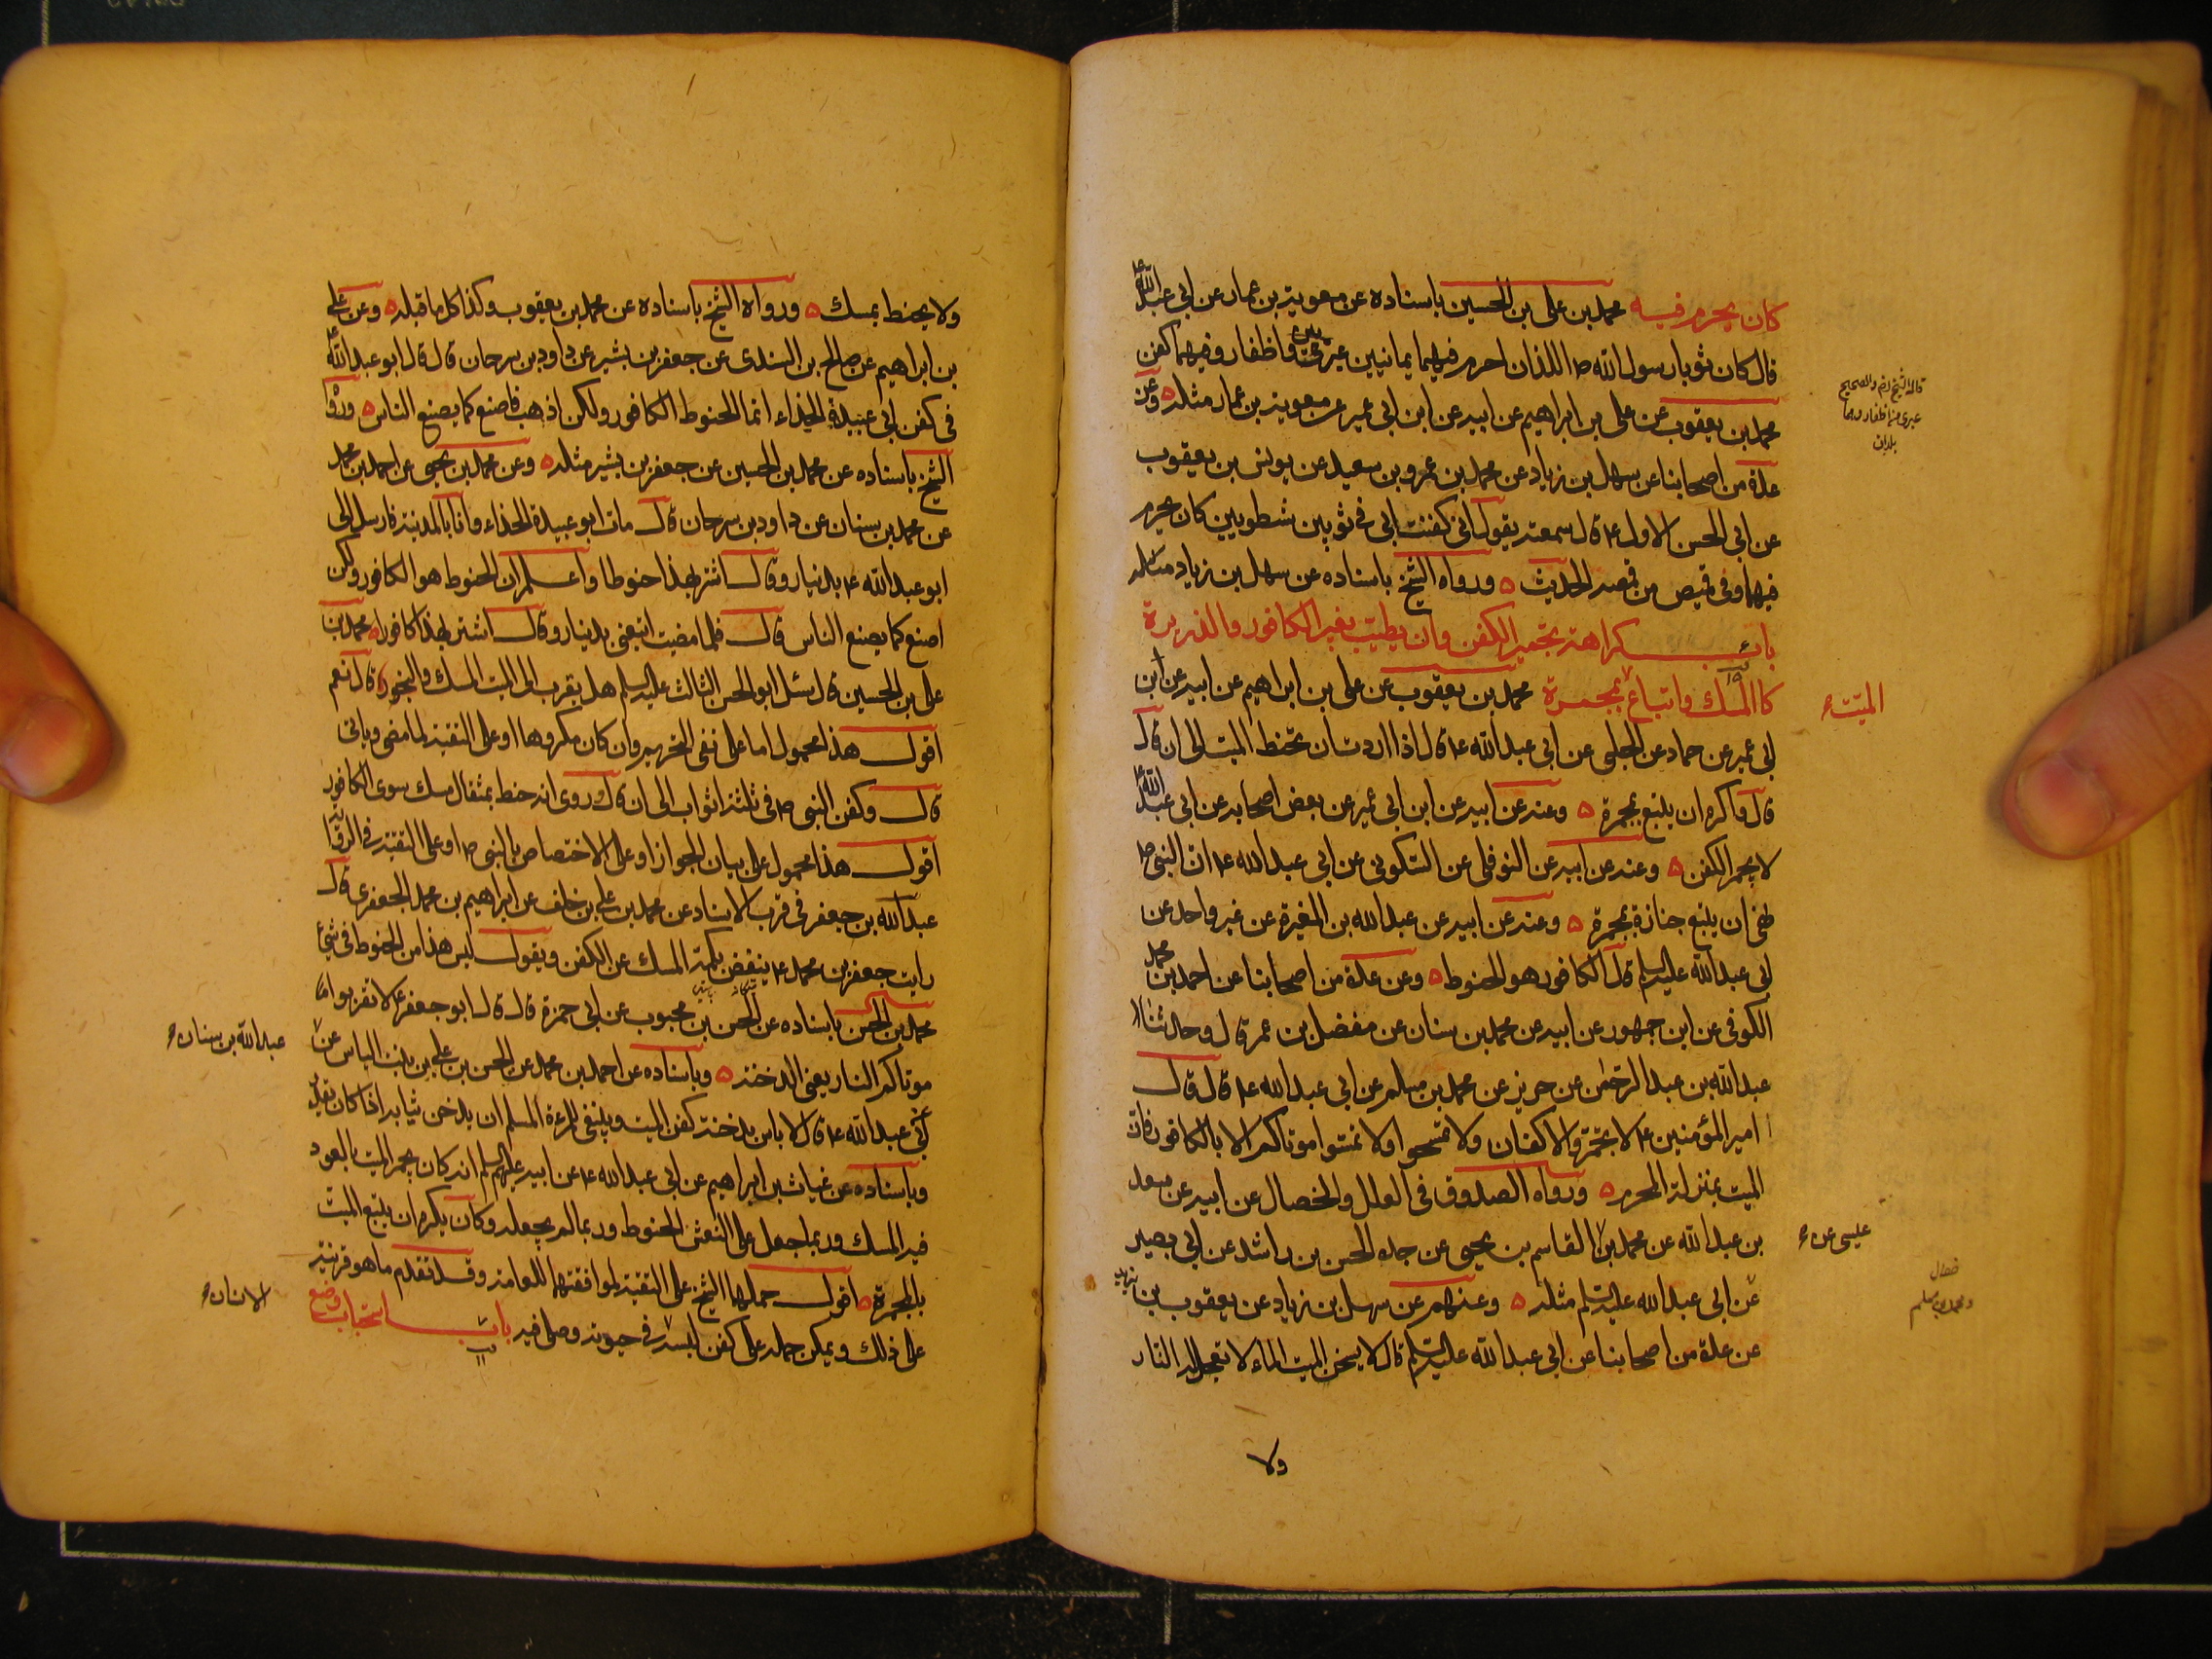 كان يحرم فيه محمد بن على بن الحسين باسناده عن معوية بن عمار عن ابى عبد الله ع
قال كان ثوبا رسول الله ص اللذان احرم فيهما يمانيين عبرى واظفار وفيهما كفن
محمد بن يعقوب عن على بن ابراهيم عن ابيه عن ابن ابى عمير عن معوية بن عمار مثله ه وعن
عدة من اصحابنا عن سهل بن زياد عن محمد بن عمرو بن سعيد عن يونس بن يعقوب
عن ابى الحسن الاول ع قال سمعته يقول انى كفنت ابى فى ثوبين شطويين كان يحرم
فيهما وفى قميص من قمصه الحديث ه ورواه الشيخ باسناده عن سهل بن زياد مثله
باب كراهة تجمير الكفن وان يطيب بغير الكافور والذريرة
كالمسك واتباع بمجمرة محمد بن يعقوب عن على بن ابراهيم عن ابيه عن ابن
الميت
ابى عمير عن حماد عن الحلبى عن ابى عبد الله ع قال اذا اردت ان تحنط الميت الى ان قال
قال واكره ان يتبع بمجمرة ه وعنه عن ابيه عن ابن ابى عمير عن بعض اصحابه عن ابى عبد الله ع
لا يجمر الكفن ه وعنه عن ابيه عن النوفلى عن السكونى عن ابى عبد الله ع ان النبى ص
نهى ان يتبع جنازة بمجمرة ه وعنه عن ابيه عن عبد الله بن المغيرة عن غير واحد عن
ابى عبد الله عليه السلم قال الكافور هو الحنوط ه وعن عدة من اصحابنا عن احمد بن محمد
الكوفى عن ابن جمهور عن ابيه عن محمد بن سنان عن مفضل بن عمر قال وحدثنا
عبد الله بن عبد الرحمن عن حريز عن محمد بن مسلم عن ابى عبد الله ع قال قال
امير المؤمنين ع لا تجمروا الاكفان ولا تمسحوا ولا تمسوا موتاكم الا بالكافور فان
الميت بمنزلة المحرم ه ورواه الصدوق فى العلل والخصال عن ابيه عن سعد
بن عبد الله عن محمد بن القاسم بن يحيى عن جده الحسن بن راشد عن ابى بصير
عيسى عن
عن ابى عبد الله عليه السلم مثله ه وعنهم عن سهل بن زياد عن يعقوب بن يزيد
ومحمد بن مسلم
عن عدة من اصحابنا عن ابى عبد الله عليه السلم قال لا يسخن الميت الماء لا تعجل له النار
ولا
ولا يحنط بمسك ه ورواه الشيخ باسناده عن محمد بن يعقوب وكذا كل ما قبله ه وعن على
بن ابراهيم عن صالح بن السندى عن جعفر بن بشير عن داود بن سرحان قال قال ابو عبد الله ع
فى كفن ابى عبيدة الحذاء انما الحنوط الكافور ولكن اذهب فاصنع كما يصنع الناس ه ورواه
الشيخ باسناده عن محمد بن الحسين عن جعفر بن بشير مثله ه وعن محمد بن يحيى عن احمد بن محمد
عن محمد بن سنان عن داود بن سرحان قال مات ابو عبيدة الحذاء وانا بالمدينة فارسل الى
ابو عبد الله ع بدينار وقال اشتر بهذا حنوطا واعلم ان الحنوط هو الكافور ولكن
اصنع كما يصنع الناس قال فلما مضيت اتبعنى بدينار وقال اشتر بهذا كافورا ه محمد بن
على بن الحسين قال سئل ابو الحسن الثالث عليه السلم هل يقرب الى الميت المسك والبخور قال نعم
اقول هذا محمول اما على نفى التحريم وان كان مكروها او على التقية لما مضى وياتى
قال وكفن النبى ص فى ثلثة اثواب الى ان قال وروى انه حنط بمثقال مسك سوى الكافور
اقول هذا محمول على بيان الجواز او على الاختصاص بالنبى ص او على التقية فى الرواية
عبد الله بن جعفر فى قرب الاسناد عن محمد بن على بن خلف عن ابراهيم بن محمد الجعفرى قال
رايت جعفر بن محمد ع ينفض بكمه المسك عن الكفن ويقول ليس هذا من الحنوط فى شئ
محمد بن الحسن باسناده عن الحسن بن محبوب عن ابى حمزة قال قال ابو جعفر ع لا تقربوا
موتاكم النار يعنى الدخنة ه وباسناده عن احمد بن محمد عن الحسن بن على بن بنت الياس عن
عبد الله بن سنان
ابى عبد الله ع قال لا باس بدخنة كفن الميت وينبغى للمرء المسلم ان يدخن ثيابه اذا كان يقدر
وباسناده عن غياث بن ابراهيم عن ابى عبد الله ع عن ابيه عليهم السلم انه كان يجمر الميت بالعود
فيه المسك وربما جعل على النعش الحنوط وربما لم يجعله وكان يكره ان يتبع الميت
بالمجمرة ه اقول حملها الشيخ على التقية لموافقتها للعامة وقد تقدم ما هو قرينة
الانسان
على ذلك ويمكن حمله على كفن لبسه فى حيوته وصلى فيه باب استحباب وضع